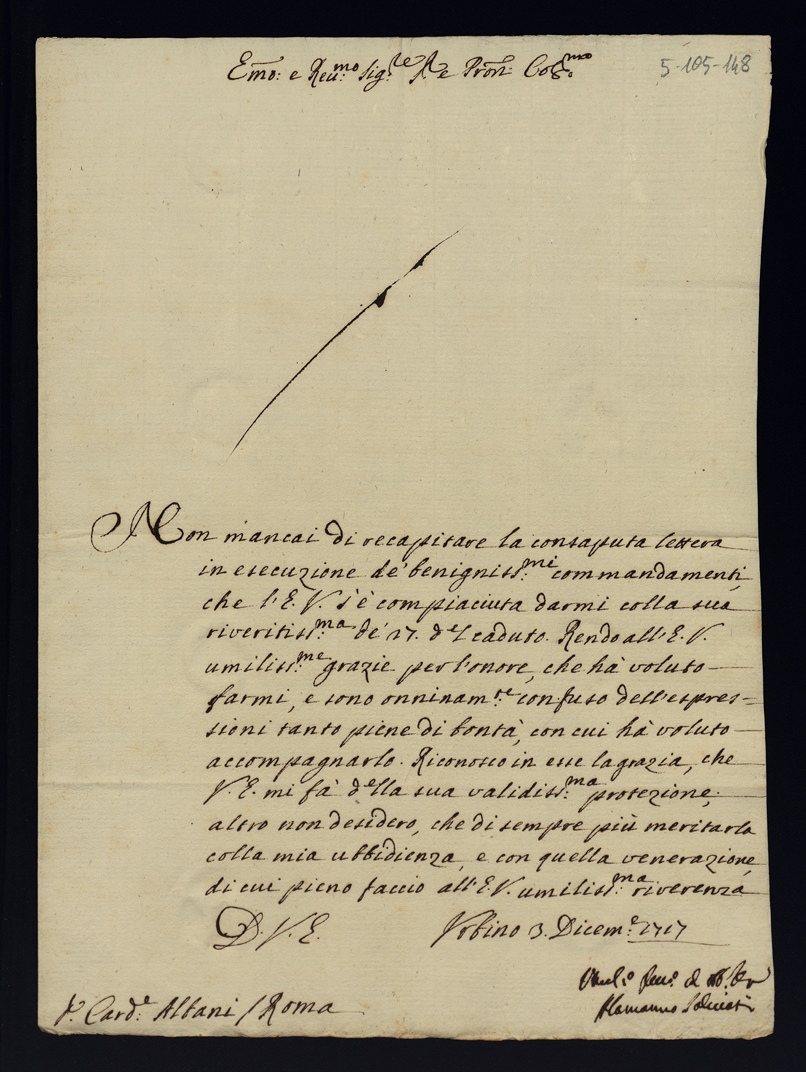 Emo: e Reu:mo Sig:re P.e Pron: Col:mo
5-105-148
Non mancai di recapitare la consaputa lettera
in esecuzione de' benigniss:mi commandamenti,
che l'E.V. s'è compiaciuta darmi colla sua
riveritiss:ma de' 27. del caduto. Rendo all'E.V.
umiliss:me grazie per l'onore, che hà voluto
farmi, e sono onninam:te confuso dell'espres=
sioni tanto piene di bontà, con cui hà voluto
accompagnarlo. Riconosco in esse la grazia, che
V.E. mi fà della sua validiss:ma protezione;
altro non desidero, che di sempre più meritarla
colla mia ubbidienza, e con quella venerazione,
di cui pieno faccio all'E.V. umiliss:ma riverenza
D.V.E. Urbino 3. Dicem:e 1717
Alamanno Salviati
S.r Card:e Albani / Roma